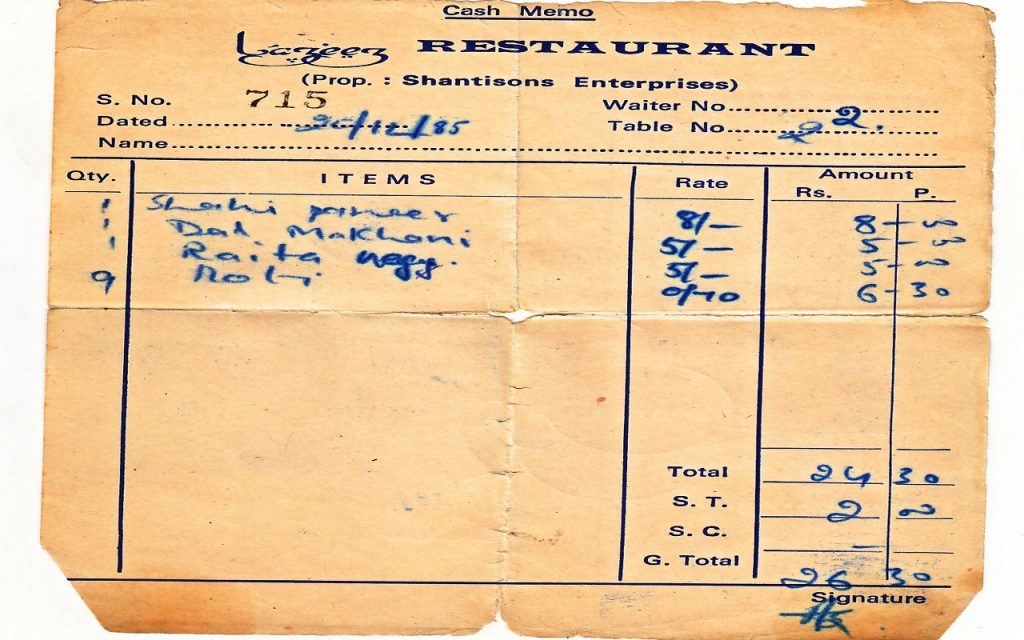 Cash Memo
Lazeez RESTAURANT
(Prop. : Shantisons Enterprises)
S. No. 715 Waiter No......... 2.
Dated......... 20/12/85 Table No......... 2
Name.........
Qty. ITEMS Rate Amount
Rs. P.
1 Shahi paneer 8/- 8 - 00
1 Dal Makhani 5/- 5 - 00
1 Raita vegg. 5/- 5 - 00
9 Roti 0/70 6 - 30
Total 24 30
S. T. 2 00
S. C. -
G. Total 26 30
Signature